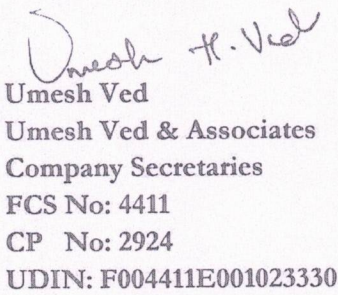 Umesh H. Ved
Umesh Ved
Umesh Ved & Associates
Company Secretaries
FCS No: 4411
CP No: 2924
UDIN: F004411E001023330